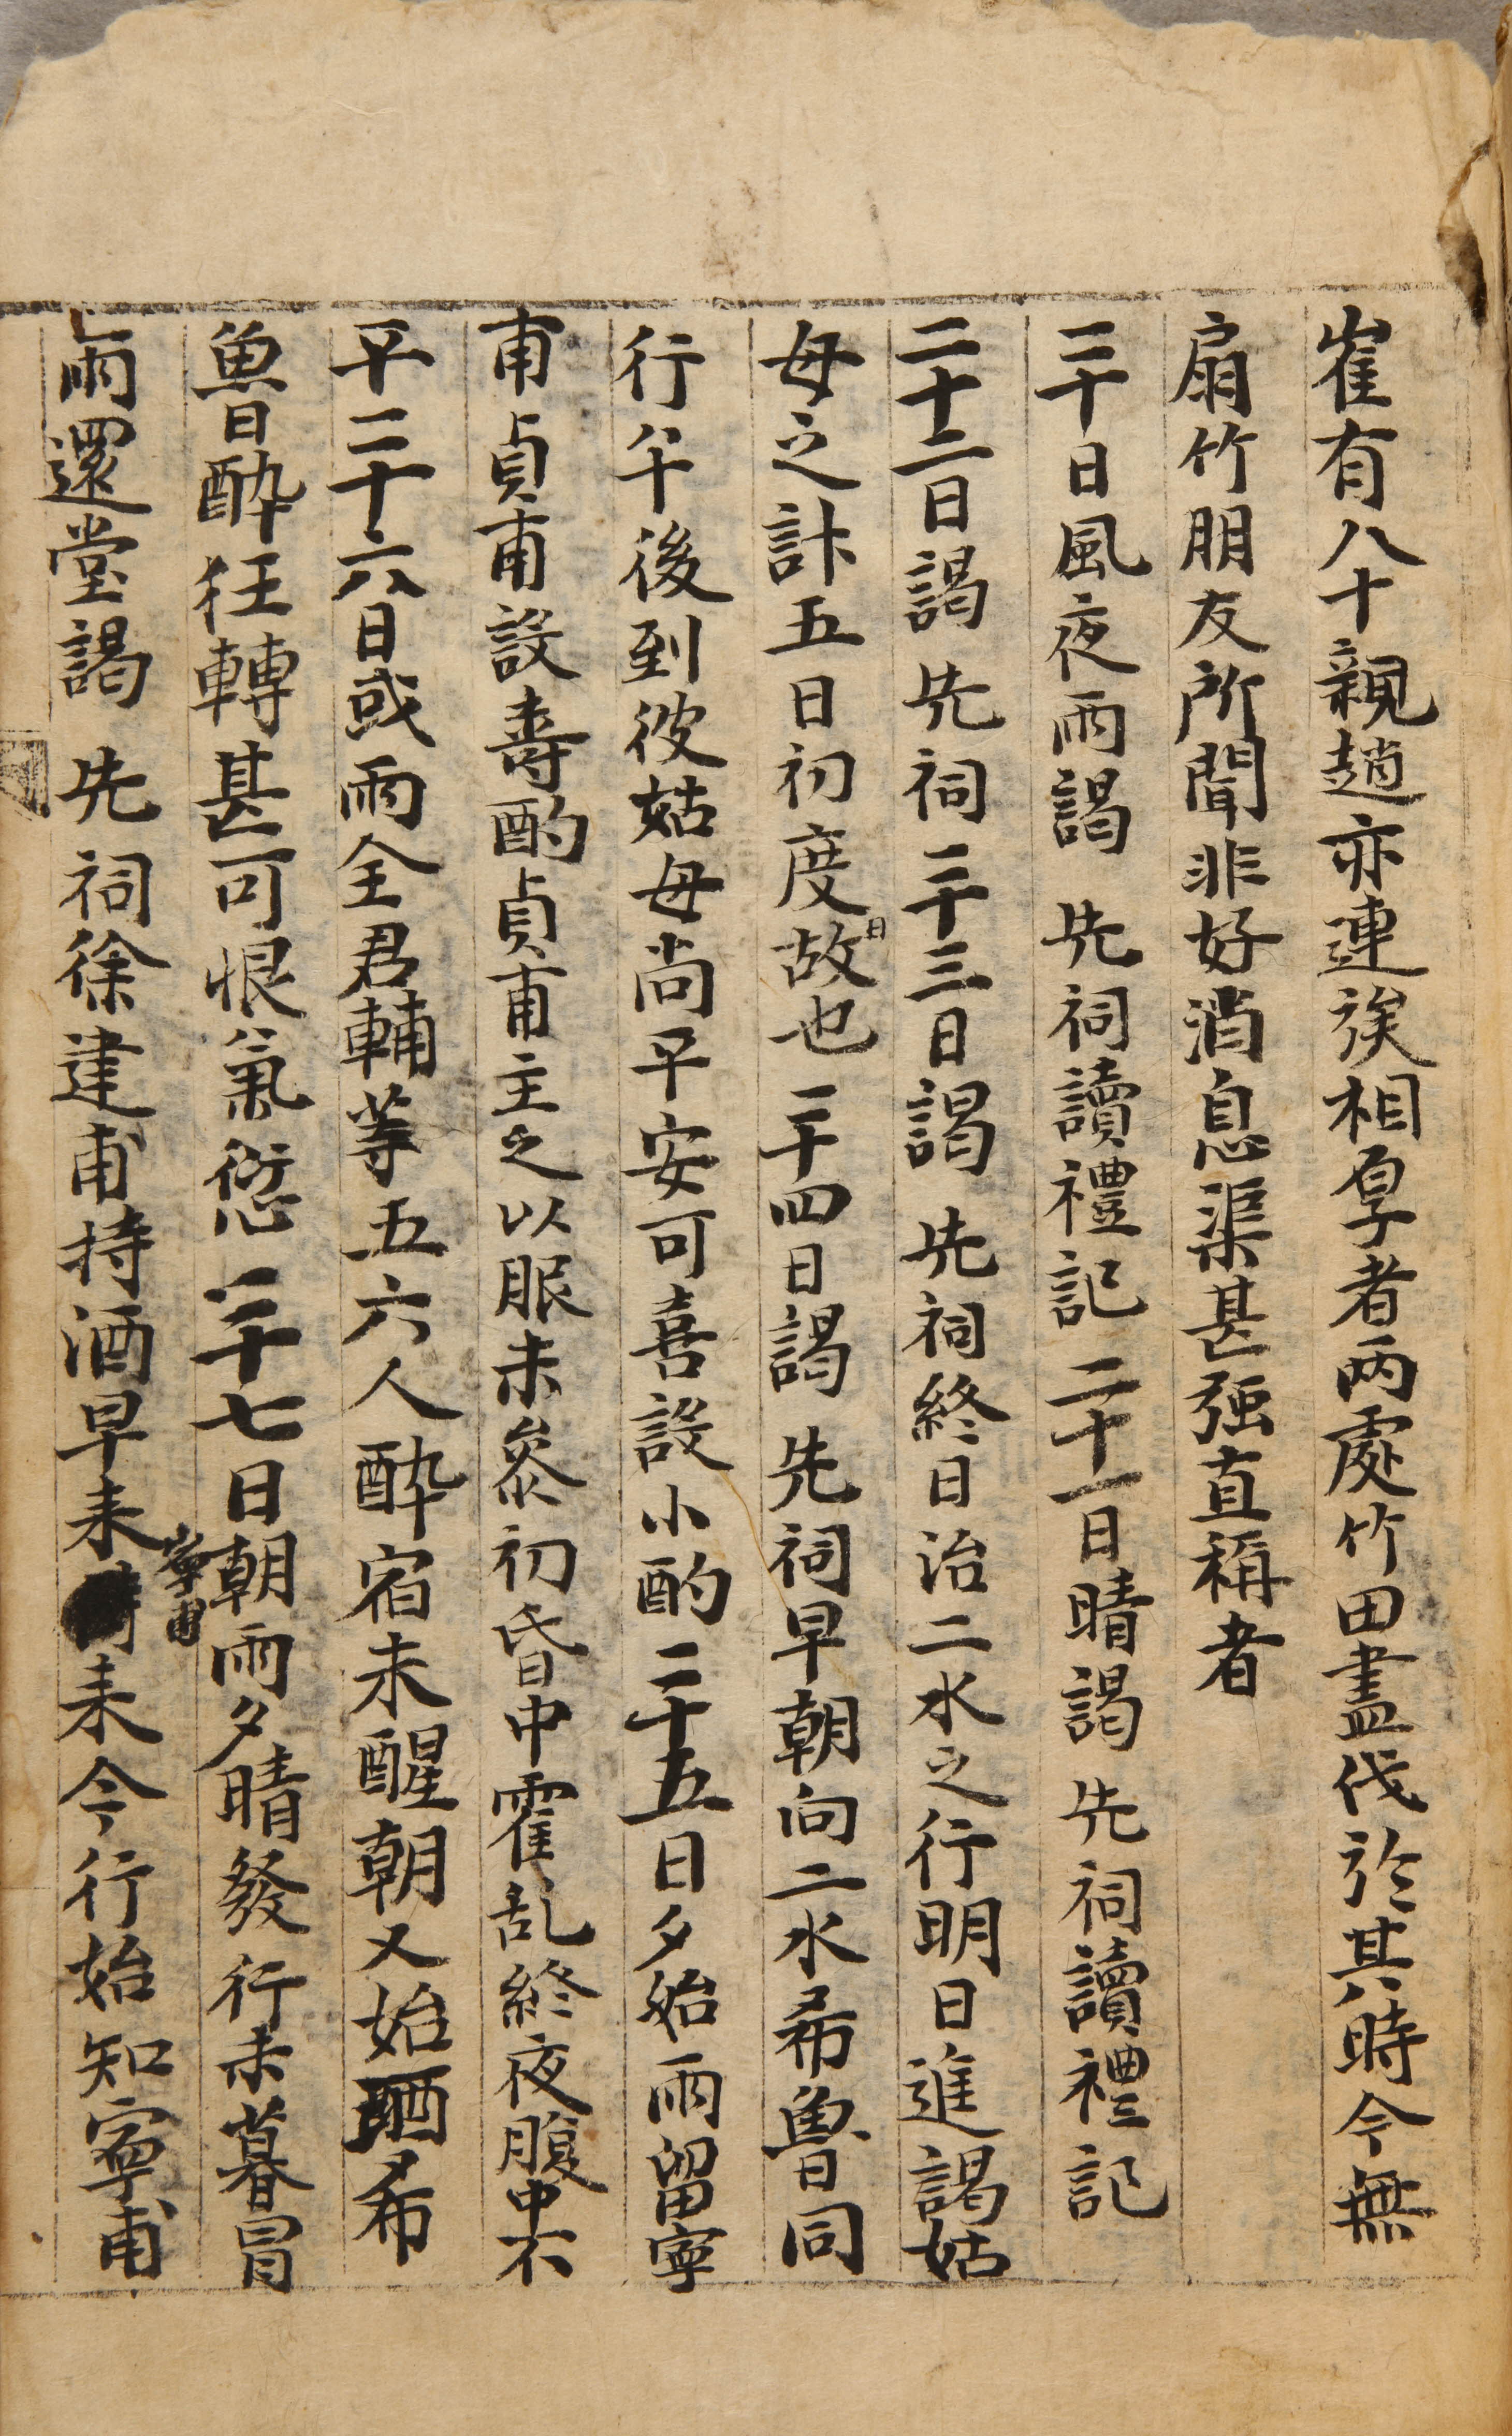 崔有八十親趙亦連族相厚者兩處竹田盡伐於其時今無
扇竹朋友所聞非好消息渠甚强直稱者
二十日風夜雨謁 先祠讀禮記二十一日晴謁 先祠讀禮記
二十二日謁 先祠二十三日謁 先祠終日治二水之行明日進謁姑
母之計五日初度日故也二十四日謁 先祠早朝向二水希魯同
行午後到彼姑母尚平安可喜設小酌二十五日夕始雨留寧
甫貞甫設壽酌貞甫主之以服未參初昏中霍乱終夜腹中不
平二十六日或雨全君輔等五六人醉宿未醒朝又始酒希
魯日醉狂轉甚可恨氣愆二十七日朝雨夕晴發行未暮冒
雨還堂謁 先祠徐建甫持酒早来寧甫来今行始知寧甫